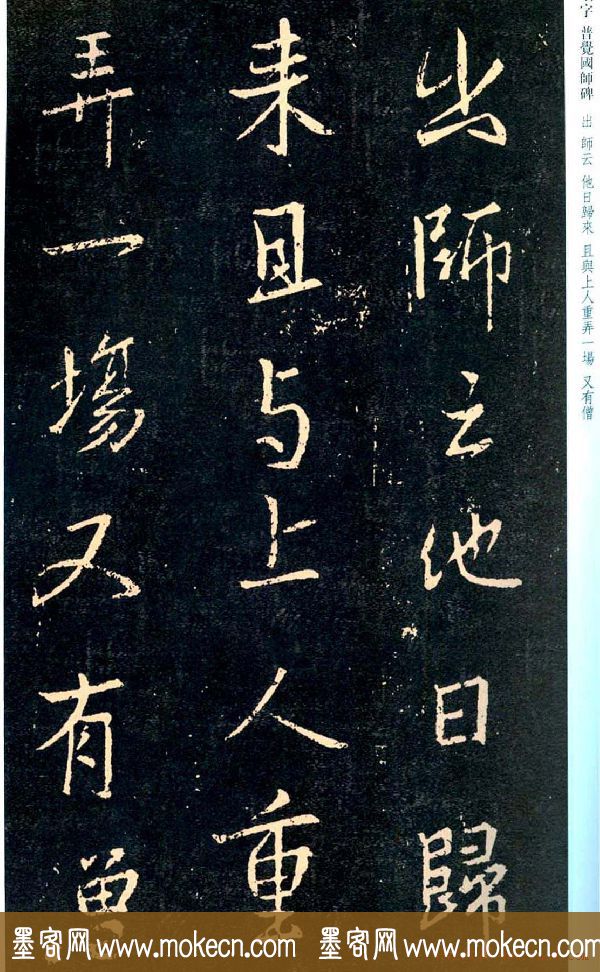 字 普覺國師碑
出 師云 他日歸來 且與上人重弄一場 又有僧
出師云他日歸
来且与上人重
弄一場又有
墨客网 www.mokecn.com 墨客网 www.mokecn.com